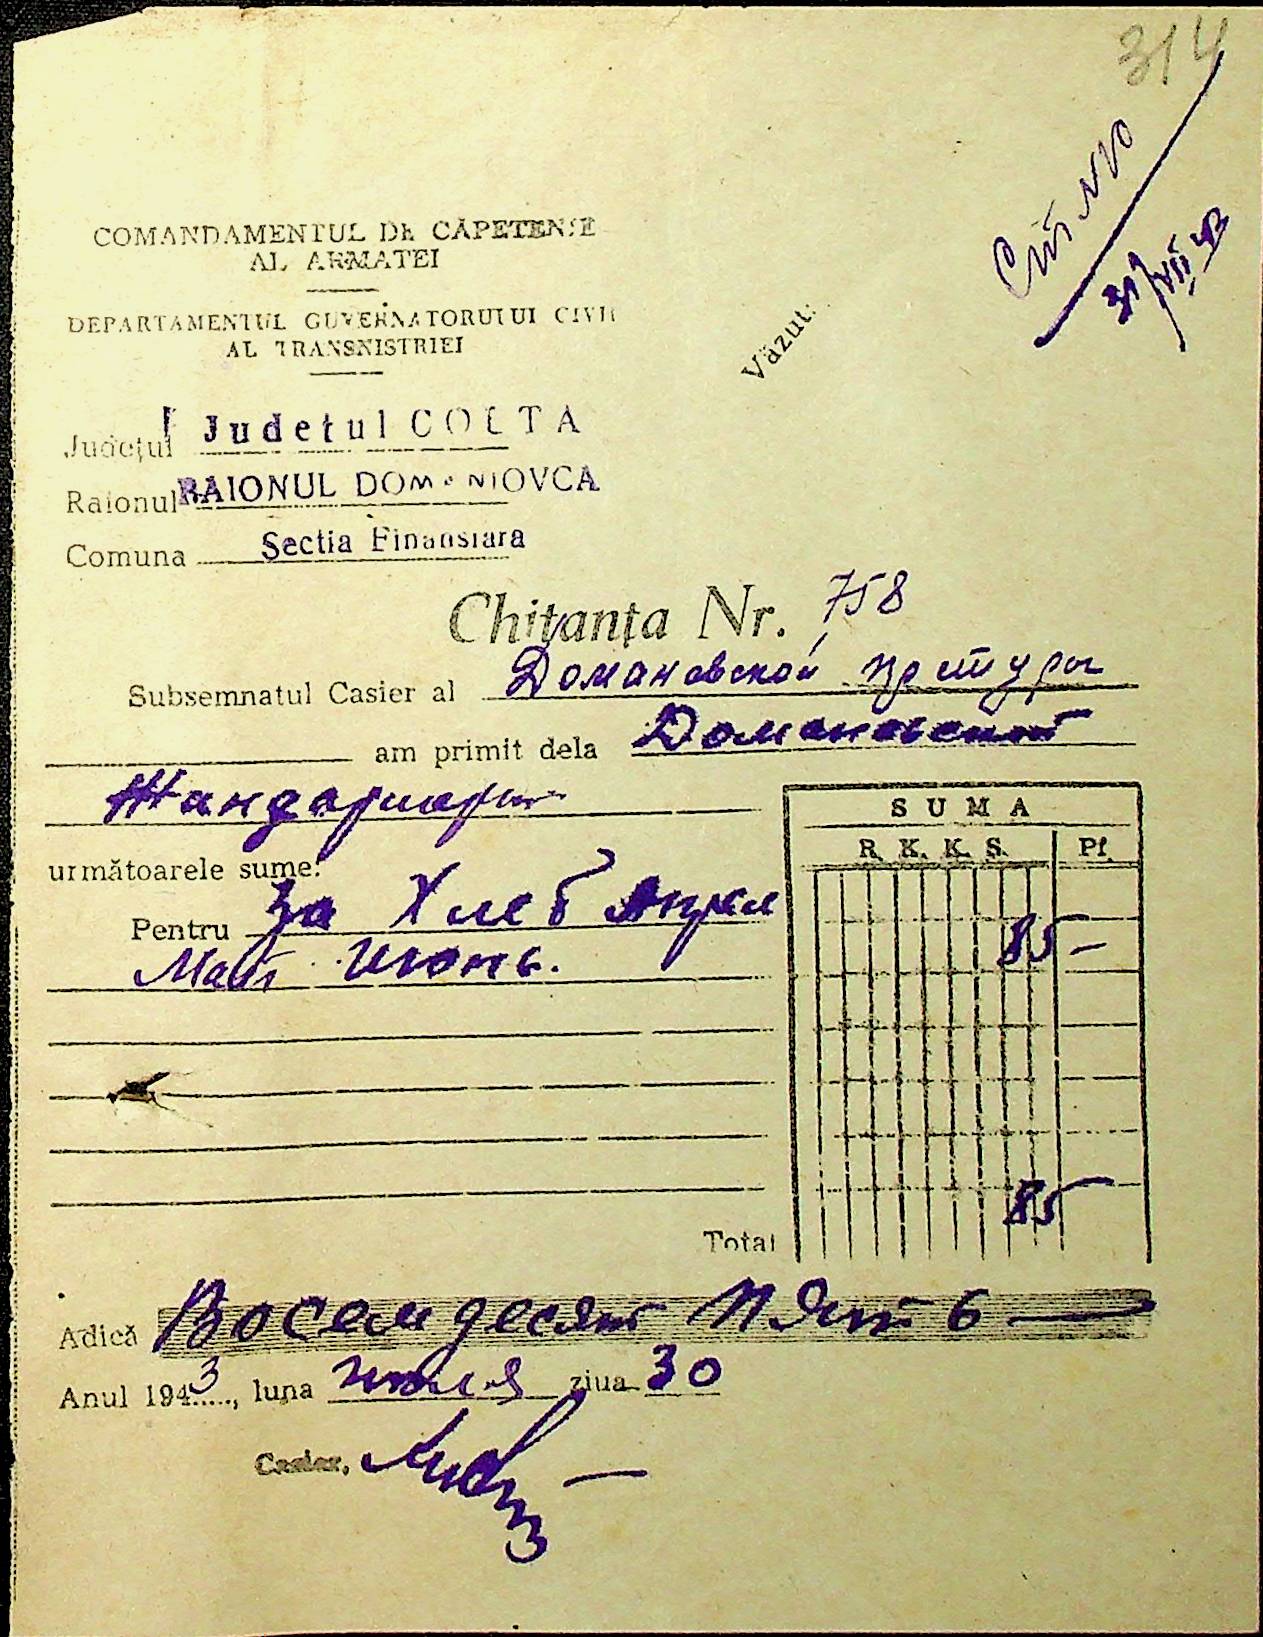 314
31/VII 43
COMANDAMENTUL DE CĂPETENIE
AL ARMATEI
DEPARTAMENTUL GUVERNATORULUI CIVIL
AL TRANSNISTRIEI
Văzut:
Județul Judetul COLTA
Raionul RAIONUL DOMANIOVCA
Comuna Sectia Finansiara
Chitanța Nr. 758
Subsemnatul Casier al Домановской претуры
am primit dela Домановской
Жандармери
următoarele sume:
Pentru За Хлеб Апрел
Май Июнь.
SUMA
R. K. K. S. Pf.
85 —
Total 85 —
Adică Восемдесят Пять —
Anul 1943, luna июля ziua 30
Casier,